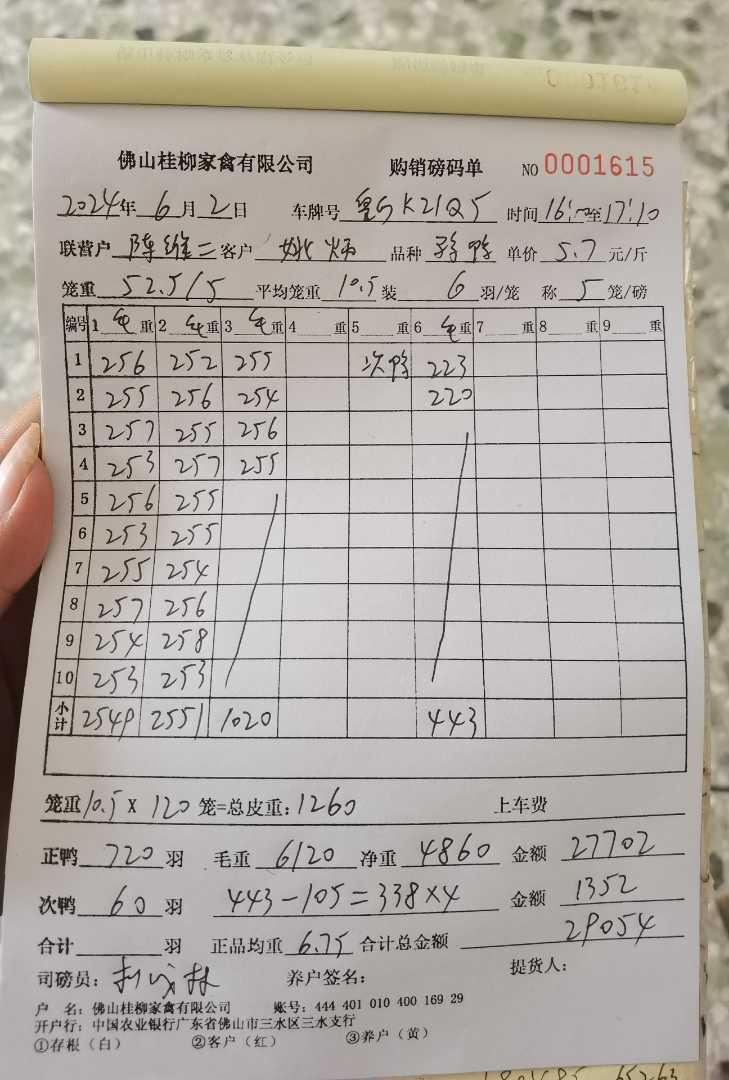 佛山桂柳家禽有限公司 购销磅码单 NO 0001615
2024年 6月 2日 车牌号 粤K21Q5 时间 16:00至17:10
联营户 陈维二 客户 姚炳 品种 鸭 单价 5.7 元/斤
笼重 52.5/5 平均笼重 10.5 装 6 羽/笼 称 5 笼/磅
编号 1 毛 重 2 毛 重 3 毛 重 4 重 5 重 6 毛 重 7 重 8 重 9 重
1 256 252 255 次鸭 223
2 255 256 254 220
3 257 255 256
4 253 257 255
5 256 255
6 253 255
7 255 254
8 257 256
9 254 258
10 253 253
小计 2549 2551 1020 443
笼重 10.5 X 120 笼=总皮重: 1260 上车费
正鸭 720 羽 毛重 6120 净重 4860 金额 27702
次鸭 60 羽 443-105=338×4 金额 1352
合计 羽 正品均重 6.75 合计总金额 29054
司磅员: 养户签名: 提货人:
户 名: 佛山桂柳家禽有限公司 账号: 444 401 010 400 169 29
开户行: 中国农业银行广东省佛山市三水区三水支行
①存根（白） ②客户（红） ③养户（黄）